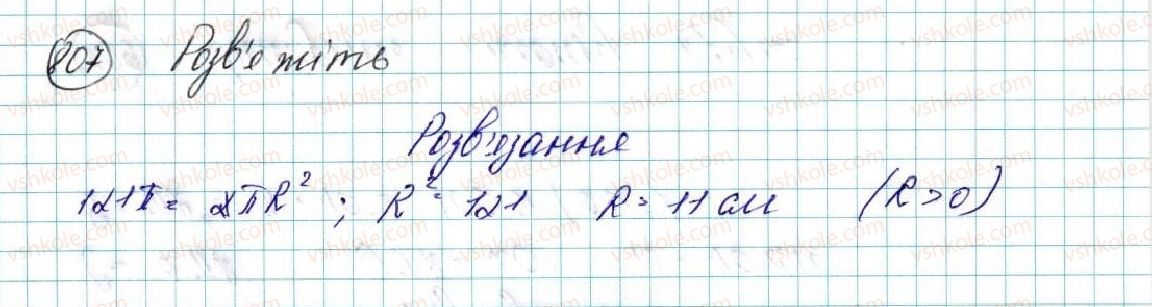 807 Розв'яжіть
Розв'язання
121π = πR²; R² = 121 R = 11 см (R > 0)